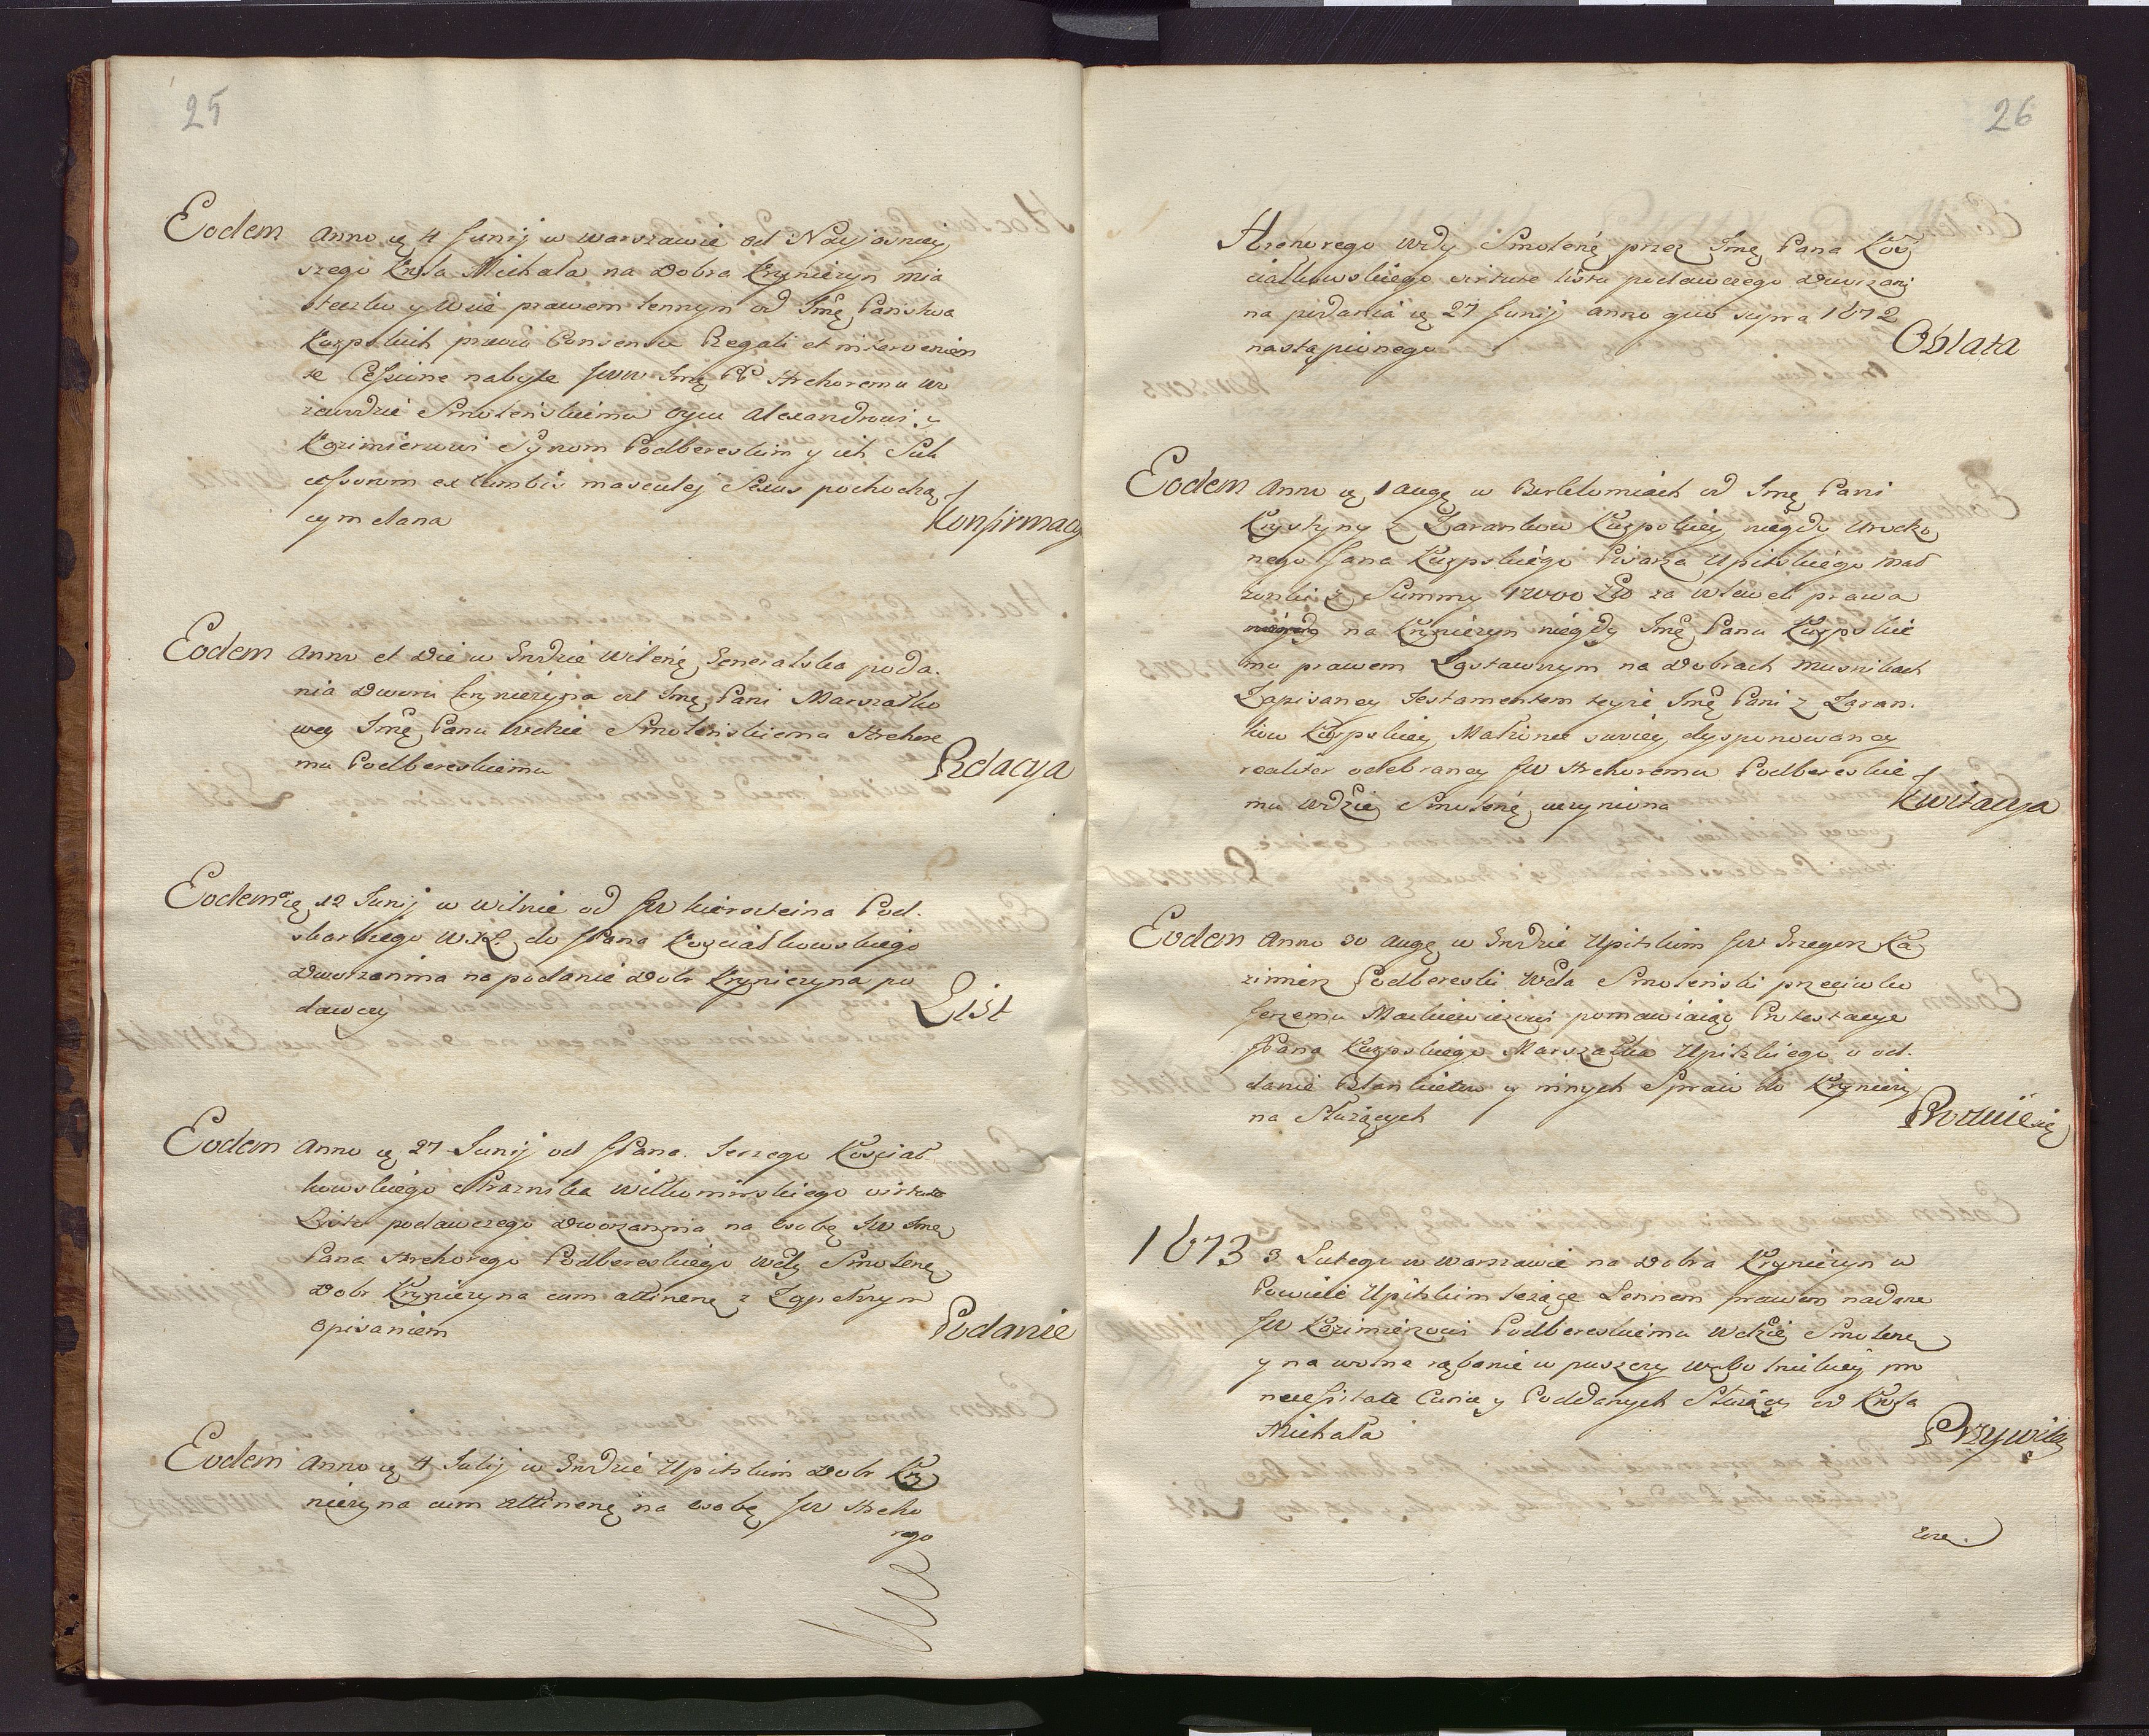 25
Eodem Anno ię 4 Junij w Warszawie od Nayjasniey
szego Krola Michala na Dobra Kryniczyn mia
steczko y Wsie prawem lennym od Imę Panstwa
Karpskich praevio Consensu Regali et intervenien
te Cessione nabyte JWW Imę PP Hrehoremu Wo
iewodzie Smolenskiemu oycu Alexandrowi y
Kazimierzowi Synom Podbereskim y ich Suk
cessorom ex lumbis masculei Sexus pochodzą
cym dana Konfirmacya
Eodem Anno et Die w Grodzie Wilenę Generalska poda-
nia Dworu Kryniczyna od Imę Pani Marszałko
wey Imę Panu Wdzie Smolenskiemu Hrehore
mu Podbereskiemu Relacya
Eodem ię 12 Junij w Wilnie od JW Kierszteina Pod-
skarbiego W.X.L. do JPana Kosciałkowskiego
Dworzanina na podanie Dobr Krynicyna po
dawczy List
Eodem Anno ię 27 Junij od JPana Jerzego Kosciał
kowskiego Straznika Wilkomirskiego virtute
Listu podawczego Dworzanina na osobę JW Imę
Pana Hrehorego Podbereskiego Wdy Smolenę
Dobr Krynicyna cum attinenę z Zupełnym
Opisaniem Podanie
Eodem Anno ię 4 Julij w Grodzie Upitskim Dobr Kry
niczyna cum attinenę na osobę JW Hreho
rego
26
Hrehorego Wdy Smolenę przez Imę Pana Kos
ciałkowskiego virtute listu podawczego Dworzani
na podania ię 27 Junij anno quo supra 1672
nastąpionego Oblata
Eodem Anno ię 1 Augę w od Imę Pani
Krystyny z Zarankow Karpskiey niegdy Urodzo
nego Jana Karpskiego Pisarza Upitskiego Mał
zonki z Summy 12000 Zło za wlewek prawa
na Krynicyn niegdy Imę Panu Karpskie
mu prawem Zastawnym na Dobrach Musnikach
Zapisaney Testamentem teyże Imę Pani z Zaran-
kow Karpskiey Matronce swoiey dysponowaney
realiter odebraney JW Hrehoremu Podbereskie
mu Wdzie Smolenę uczyniona Kwitacya
Eodem Anno 30 Augę w Grodzie Upitskim JW Grzegorz Ka
zimierz Podbereski Wda Smolenski przeciwko
Jerzemu Mackiewiczowi pomawiaiąc Protestacye
JPana Karpskiego Marszałka Upitskiego o od-
danie Blankietow y innych Spraw do Krynicy
na Służących
1673 3 Lutego w Warszawie na Dobra Krynicyn w
Powiecie Upitskim leżące Lennem prawem nadane
JW Kazimierzowi Podbereskiemu Wdzie Smolenę
y na wolne rąbanie w puszczy pro
necessitate Curiae y Poddanych Służący od Krola
Michała Przywiley